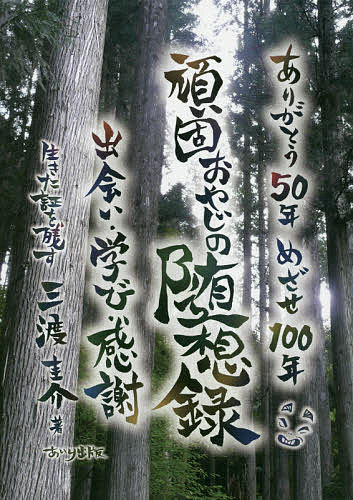 ありがとう50年めざせ100年
頑固おやじの随想録
出会い・学び・感謝
生きた証を残す 三渡圭介 著
あけび出版